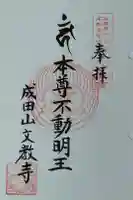 奉拝
本尊不動明王
成田山文教寺